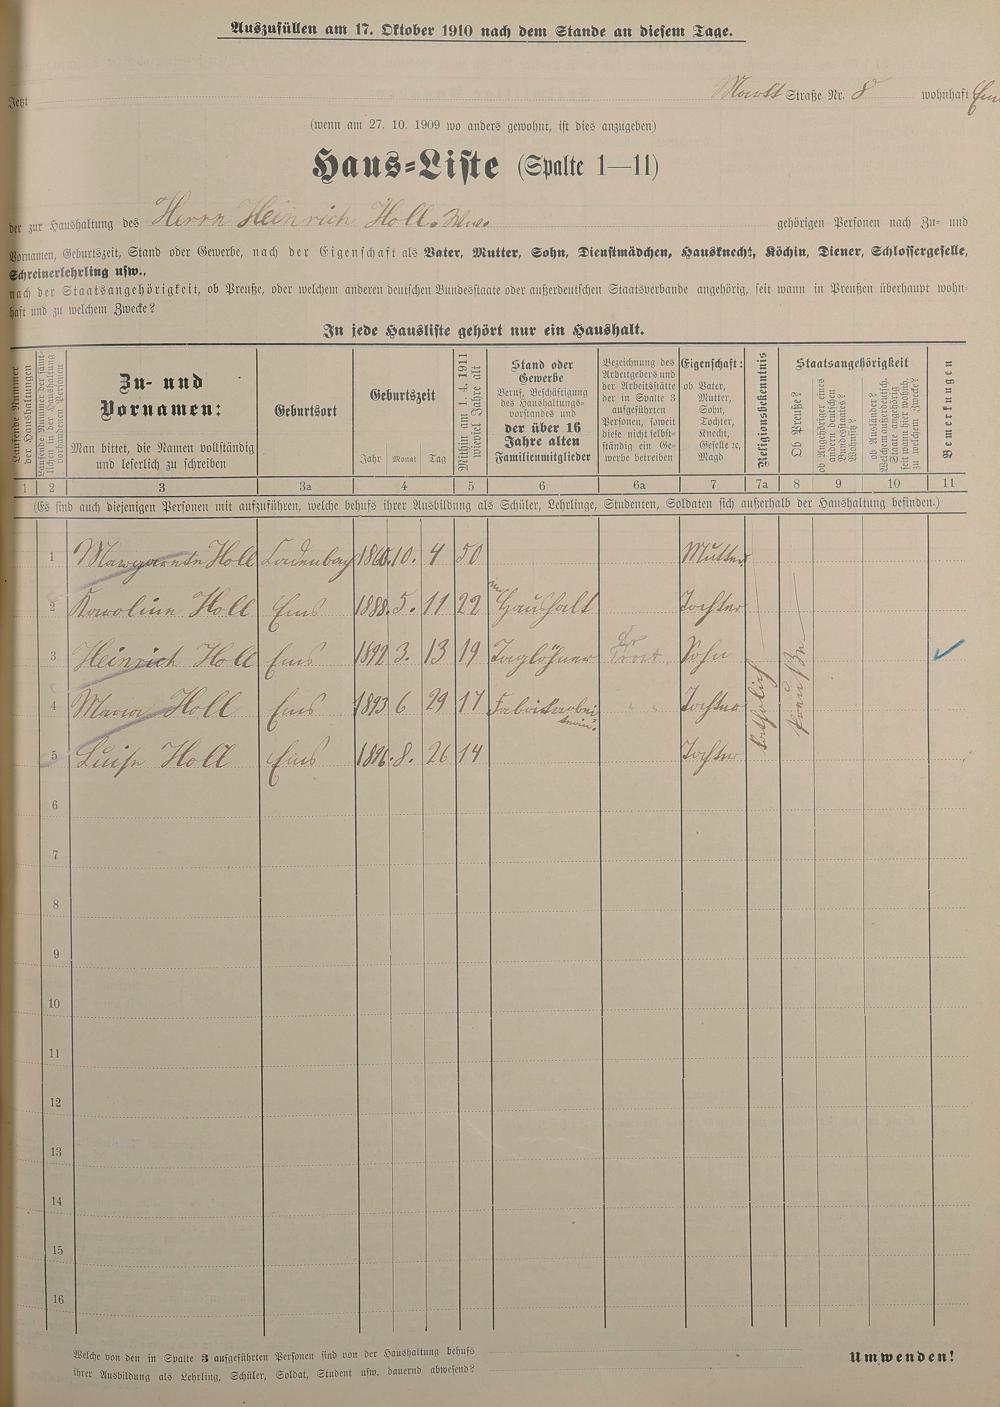 Auszufüllen am 17. Oktober 1910 nach dem Stande an diesem Tage.
Jetzt Markt Straße Nr. 8 wohnhaft
(wenn am 27. 10. 1909 wo anders gewohnt, ist dies anzugeben)
Haus-Liste (Spalte 1—11)
der zur Haushaltung des Herrn Heinrich Holl. Ww. gehörigen Personen nach Zu- und
Vornamen, Geburtszeit, Stand oder Gewerbe, nach der Eigenschaft als Vater, Mutter, Sohn, Dienstmädchen, Hausknecht, Köchin, Diener, Schlossergeselle,
Schreinerlehrling usw.,
nach der Staatsangehörigkeit, ob Preuße, oder welchem anderen deutschen Bundesstaate oder außerdeutschen Staatsverbande angehörig, seit wann in Preußen überhaupt wohn-
haft und zu welchem Zwecke?
In jede Hausliste gehört nur ein Haushalt.
Laufende Nummer der Haushaltungen
Laufende Nummer der sämt-
lichen in der Haushaltung
vorhandenen Personen
Zu- und
Vornamen:
Man bittet, die Namen vollständig
und leserlich zu schreiben
Geburtsort
Geburtszeit
Jahr Monat Tag
Mithin am 1. 4. 1911
wieviel Jahre alt
Stand oder
Gewerbe
Beruf, Beschäftigung
des Haushaltungs-
vorstandes und
der über 16
Jahre alten
Familienmitglieder
Bezeichnung des
Arbeitgebers und
der Arbeitsstätte
der in Spalte 3
aufgeführten
Personen, soweit
diese nicht selbst-
ständig ein Ge-
werbe betreiben
Eigenschaft:
ob Vater,
Mutter,
Sohn,
Tochter,
Knecht,
Geselle ꝛc,
Magd
Religionsbekenntnis
Staatsangehörigkeit
Ob Preuße?
ob Angehöriger eines
andern deutschen
Bundesstaates?
Womit?
ob Ausländer?
Welchem außerdeutsch.
Staate angehörig
seit wann hier wohnh.
zu welchem Zwecke?
Bemerkungen
1 2 3 3a 4 5 6 6a 7 7a 8 9 10 11
(Es sind auch diejenigen Personen mit aufzuführen, welche behufs ihrer Ausbildung als Schüler, Lehrlinge, Studenten, Soldaten sich außerhalb der Haushaltung befinden.)
1 Margarete Holl 1860. 10. 4 50 Mutter
2 Karoline Holl Ems 1888. 5. 11 22 im Haushalt Tochter
3 Heinrich Holl Ems 1892 3. 13 19 Taglöhner Sohn
4 Maria Holl Ems 1893 6 29 17 Fabrikarbei-
terin. " " Tochter
5 Luise Holl Ems 1896. 8. 26 14 Tochter
katholisch
Preuße
6
7
8
9
10
11
12
13
14
15
16
Welche von den in Spalte 3 aufgeführten Personen sind von der Haushaltung behufs
ihrer Ausbildung als Lehrling, Schüler, Soldat, Student usw. dauernd abwesend?
Umwenden!